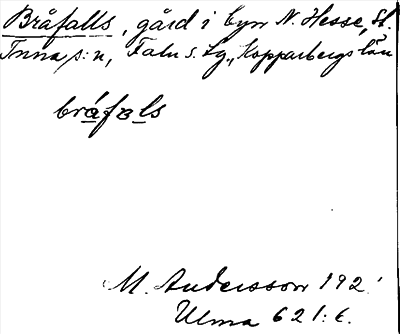 Bråfalls, gård i byn N. Hesse, St.
Tuna s:n, Falu s. lg., Kopparbergs län
bråfals
M. Andersson 192
Ulma 621: 6.